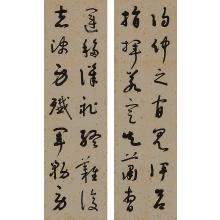 伯仲之間見伊呂
指揮若定失蕭曹
運移漢祚終難復
志決身殲軍務勞